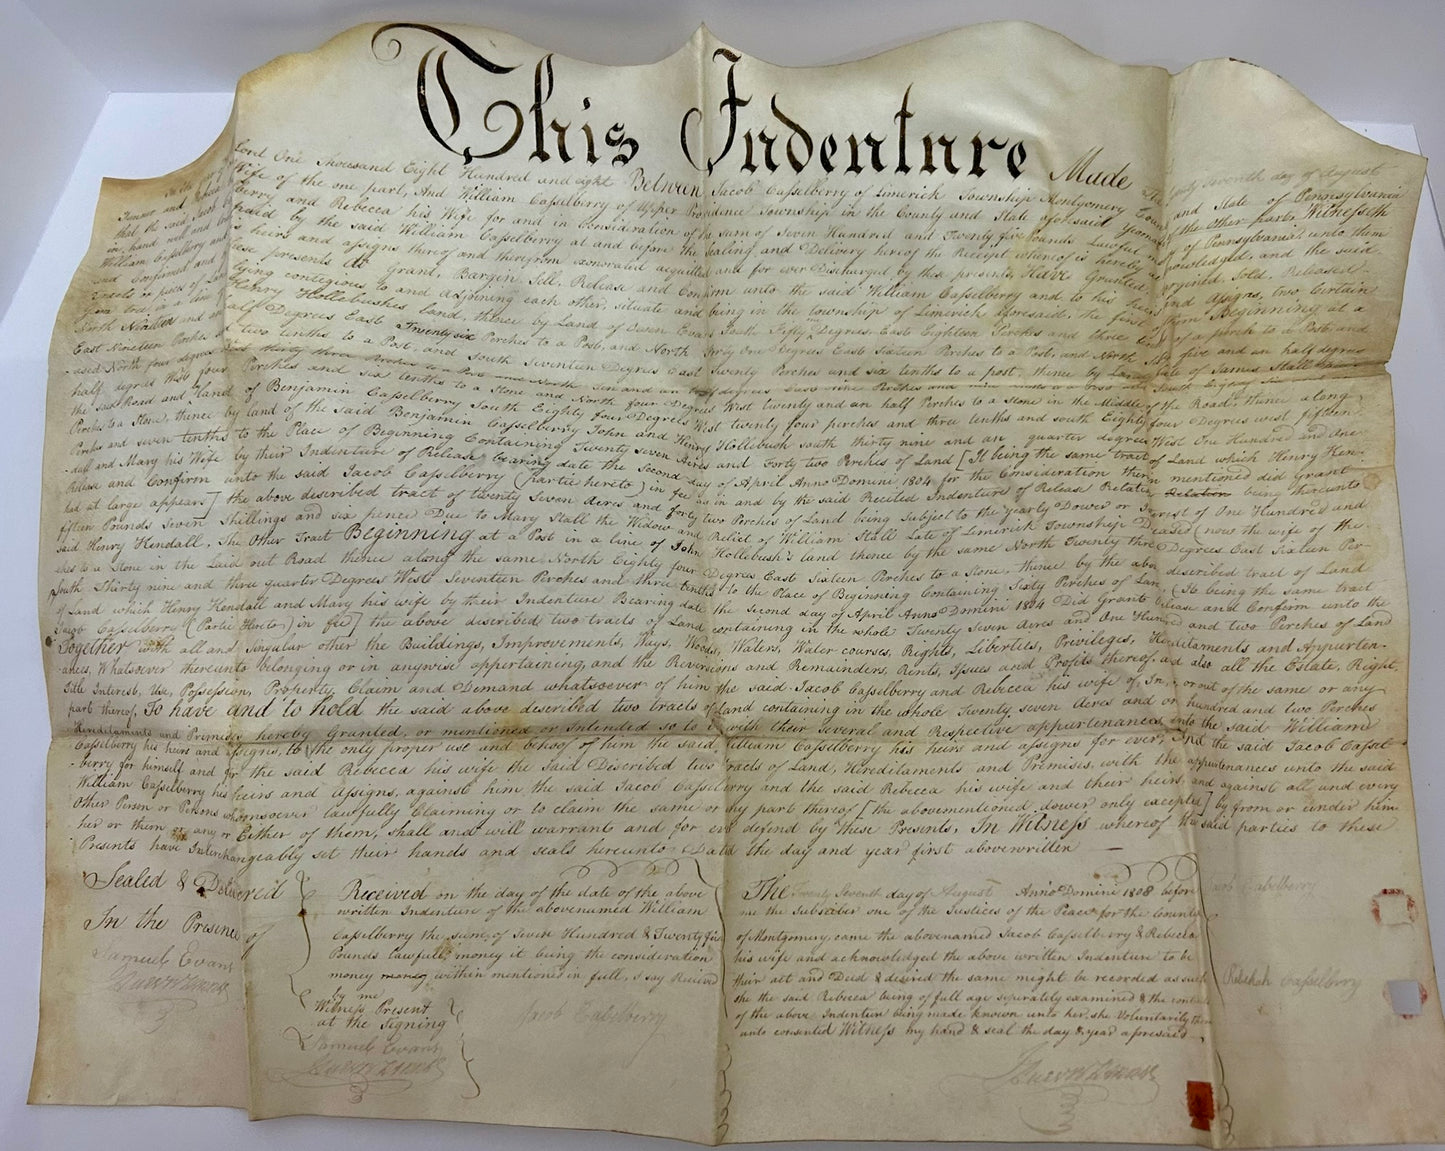 This Indenture Made The Twenty Seventh day of August
Lord One Thousand Eight Hundred and eight Between Jacob Casselberry of Limerick Township Montgomery County and State of Pennsylvania
Wife of the one part, And William Casselberry of Upper Providence Township in the County and State aforesaid Yeoman of the other part, Witnesseth
that the said Jacob Casselberry and Rebecca his Wife for and in Consideration of the sum of Seven Hundred and Twenty five Pounds Lawful of Pennsylvania, unto them
in hand well and paid by the said William Casselberry at and before the Sealing and Delivery hereof the Receipt whereof is hereby acknowledged, and the said
William Casselberry and his heirs and assigns thereof and therefrom exonerated acquitted and for ever Discharged by these presents, Have Granted, Bargained, Sold, Released
and Confirmed and these presents do Grant, Bargin, Sell, Release and Confirm unto the said William Casselberry and to his heirs and Assigns, two Certain
Tracts or pieces of Land lying contegious to and adjoining each other, situate and being in the township of Limerick aforesaid, the first Beginning at a
Henry Hollebushes land, thence by Land of Owen Evans South Fifty Degrees, East Eighteen Perches and three tenths of a perch to a Post, and
North Nineteen and an half Degrees East Twenty six Perches to a Post, and North Forty One Degrees East Sixteen Perches to a Post, and North five and an half degrees
East Nineteen Perches and two tenths to a Post, and South Seventeen Degrees East Twenty Perches and six tenths to a post, thence by Land late of James Stall
half degrees West four Perches and six tenths to a Stone and North four Degrees West twenty and an half Perches to a Stone in the Middle of the Road, thence along
the said Road and Land of Benjamin Casselberry South Eighty four Degrees West twenty four perches and three tenths and South Eighty four Degrees west fifteen
Perches to a Stone, thence by land of the said Benjamin Casselberry John and Henry Hollebush South thirty nine and an quarter degrees West One Hundred and One
Perches and seven tenths to the Place of Beginning Containing Twenty Seven Acres and Forty two Perches of Land [It being the same tract of Land which Henry Ken-
-dall and Mary his Wife by their Indenture of Release bearing date the Second day of April Anno Domini 1804 for the Consideration therein mentioned did Grant
Release and Confirm unto the said Jacob Casselberry (partie hereto) in fee as in and by the said Recited Indenture of Release Relation Relation being thereunto
had at large appears] the above described tract of twenty Seven Acres and forty two Perches of Land being Subject to the yearly Dower or Interest of One Hundred and
fifteen Pounds Seven Shillings and six pence Due to Mary Stall the Widow and Relief of William Stall Late of Limerick Township Deceased (now the wife of the
said Henry Kendall, The Other Tract Beginning at a Post in a line of John Hollebush's land thence by the same North Twenty three Degrees East Sixteen Per-
ches to a Stone in the Laid out Road thence along the same North Eighty four Degrees East Sixteen Perches to a Stone, thence by the above described tract of Land
South Thirty nine and three quarter Degrees West Seventeen Perches and three tenths to the Place of Beginning Containing Sixty Perches of Land (It being the same tract
of Land which Henry Kendall and Mary his wife by their Indenture Bearing date the Second day of April Anno Domini 1804 Did Grant Release and Confirm unto the
Jacob Casselberry (Partie Hereto) in fee] the above described two tracts of Land containing in the whole Twenty Seven Acres and One Hundred and two Perches of Land
Together with all and Singular other the Buildings, Improvements, Ways, Woods, Waters, Water courses, Rights, Liberties, Privileges, Hereditaments and Appurten-
-ances, Whatsoever thereunto belonging or in anywise appertaining, and the Reversions and Remainders, Rents, Issues and Profits thereof, and also all the Estate, Right,
Title Interest, Use, Possession, Property, Claim and Demand whatsoever of him the said Jacob Casselberry and Rebecca his wife of, In, or out of the same or any
part thereof, To have and to hold the said above described two tracts of land containing in the whole Twenty seven Acres and one hundred and two Perches
Hereditaments and Primises hereby Granted, or mentioned or Intended so to be with their Several and Respective appurtenances, unto the said William
Casselberry his heirs and assigns, to the only proper use and behoof of him the said, William Casselberry his heirs and assigns for ever, And the said Jacob Cassel-
-berry for himself and for the said Rebecca his wife the Said Described two tracts of Land, Hereditaments and Premises, with the appurtenances unto the said
William Casselberry his heirs and Assigns, against him, the said Jacob Casselberry and the said Rebecca his wife and their heirs, and against all and every
Other Person or Persons whomsoever lawfully Claiming or to claim the same or any part thereof [the abovementioned, dower only excepted] by from or under him
her or them or any or Either of them, shall and will warrant and for ever defend by These Presents, In Witness whereof the said parties to these
Presents have Interchangeably set their hands and seals hereunto Dated the day and year first abovewritten
Sealed & Delivered
In the Presence of
Samuel Evans
Received on the day of the date of the above
written Indenture of the abovenamed William
Casselberry the sum, of Seven Hundred & Twenty five
Pounds lawfull money it being the consideration
money money within mentioned in full, I say Received
by me
Witness Present
at the Signing
Jacob Casselberry
Samuel Evans
The Twenty Seventh day of August Anno Domini 1808 before
me the Subscriber one of the Justices of the Peace for the County
of Montgomery, came the abovenamed Jacob Casselberry & Rebecca
his wife and acknowledged the above written Indenture to be
their act and Deed & desired the same might be recorded as such
she the said Rebecca being of full age seperately examined & the contents
of the above Indenture being made known unto her, she Voluntarily then
unto consented Witness my hand & seal the day & year aforesaid
Jacob Casselberry
Rebekah Casselberry